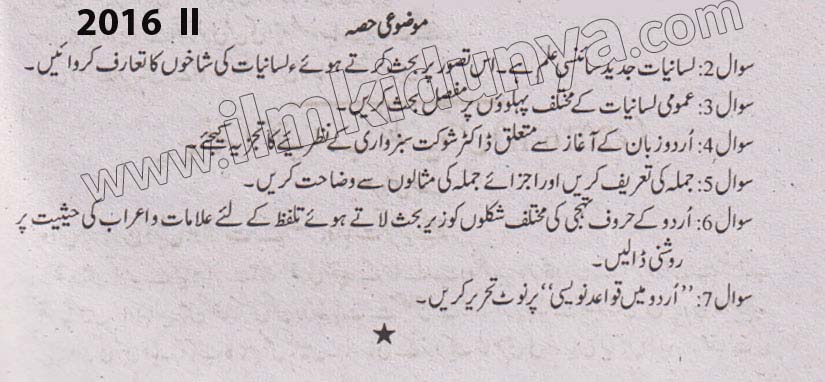 2016 II
موضوعی حصہ
سوال 2: لسانیات جدید سائنسی علم ہے۔ اس تصور پر بحث کرتے ہوئے لسانیات کی شاخوں کا تعارف کروائیں۔
سوال 3: عمومی لسانیات کے مختلف پہلوؤں پر مفصل بحث کریں۔
سوال 4: اُردو زبان کے آغاز سے متعلق ڈاکٹر شوکت سبزواری کے نظریے کا تجزیہ کیجئے۔
سوال 5: جملہ کی تعریف کریں اور اجزائے جملہ کی مثالوں سے وضاحت کریں۔
سوال 6: اُردو کے حروف تہجی کی مختلف شکلوں کو زیر بحث لاتے ہوئے تلفظ کے لئے علامات و اعراب کی حیثیت پر
روشنی ڈالیں۔
سوال 7: "اُردو میں قواعد نویسی" پر نوٹ تحریر کریں۔
www.ilmkidunya.com